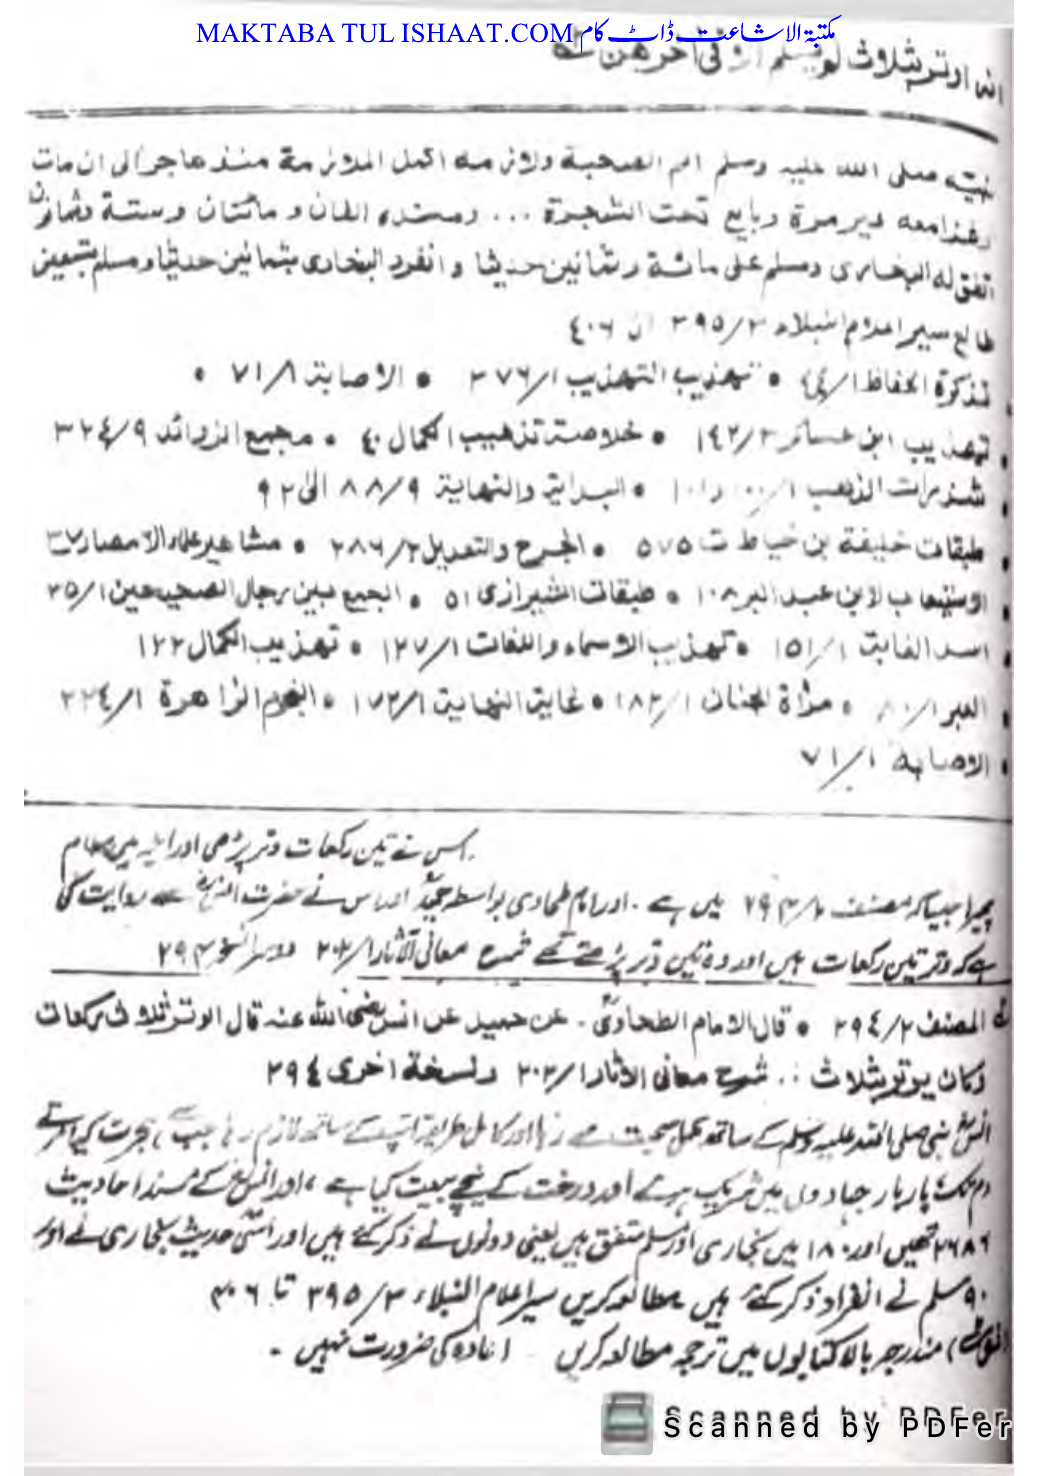 MAKTABA TUL ISHAAT.COM مکتبۃ الاشاعت ڈاٹ کام
انہ اوتر بثلاث لم یسلم الا فی آخرهن
نبیہ صلی اللہ علیہ وسلم اتم الصحبة ولازمه اکمل الملازمة منذ هاجر الی ان مات
وغزا معه غیر مرة وبایع تحت الشجرة ... ومسنده الفان و مائتان وستة وثمانون
اتفق له البخاری ومسلم علی مائة وثمانین حدیثا وانفرد البخاری بثمانین حدیثا ومسلم بتسعین
طالع سیر اعلام النبلاء ۳/۳۹۵ الی ۴۰۶
تذکرة الحفاظ ۱/ • تهذیب التهذیب ۱/۳۷۶ • الاصابة ۱/۷۱ •
• تهذیب ابن عساکر ۳/۱۴۲ • خلاصة تذهیب الکمال ۴۰ • مجمع الزوائد ۹/۳۲۴
• شذرات الذهب ۱/۱۰۰ و۱۰۱ • البدایة والنهایة ۹/۸۸ الی ۹۲
• طبقات خلیفة بن خیاط ت ۵۷۵ • الجرح والتعدیل ۲/۲۸۶ • مشاهیر علماء الامصار ت
• الاستیعاب لابن عبد البر ۱۰۸ • طبقات الشیرازی ۵۱ • الجمع بین رجال الصحیحین ۱/۳۵
• اسد الغابة ۱/۱۵۱ • تهذیب الاسماء واللغات ۱/۱۲۷ • تهذیب الکمال ۱۲۲
• العبر ۱/۸۰ • مرآة الجنان ۱/۱۸۲ • غایة النهایة ۱/۱۷۲ • النجوم الزاهرة ۱/۲۲۴
• الاصابة ۱/۷۱
اس نے تین رکعات وتر پڑھی اور میں سلام
پھیرا جیسا کہ مصنف ۲/۲۹۴ میں ہے ۔ اور امام طحاوی بواسطہ حمید اور اس نے حضرت انسؓ سے روایت کی
ہے کہ وتر تین رکعات ہیں اور وہ تین وتر پڑھتے تھے شرح معانی الآثار ۱/۲۰۲ دوسرا نسخہ ۲۹۴
المصنف ۲/۲۹۴ • قال الامام الطحاویؒ ۔ عن حمید عن انس رضی اللہ عنه قال الوتر ثلاث رکعات
وکان یوتر بثلاث ... شرح معانی الآثار ۱/۲۰۲ ونسخة اخری ۲۹۴
انسؓ نبی صلی اللہ علیہ وسلم کے ساتھ مکمل صحبت سے رہا اور کامل طریقہ آپ کے ساتھ لازم رہا جب سے ہجرت کیا مرتے
دم تک بار بار جہادوں میں شریک ہوئے اور درخت کے نیچے بیعت کیا ہے ، اور انسؓ کے مسند احادیث
۲۲۸۶ تھیں اور ۱۸۰ میں بخاری اور مسلم متفق ہیں یعنی دونوں نے ذکر کئے ہیں اور اسّی حدیث بخاری نے اور
۹۰ مسلم نے انفراد ذکر کئے ہیں مطالعہ کریں سیر اعلام النبلاء ۳/۳۹۵ تا ۴۰۶
مندرجہ بالا کتابوں میں ترجمہ مطالعہ کریں اعادہ کی ضرورت نہیں ۔
Scanned by PDFer